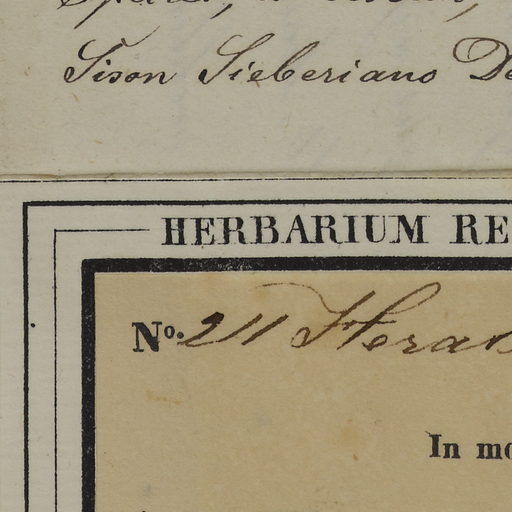 Tison Sieberiano De
HERBARIUM RE
No. 211 Herac
In mo